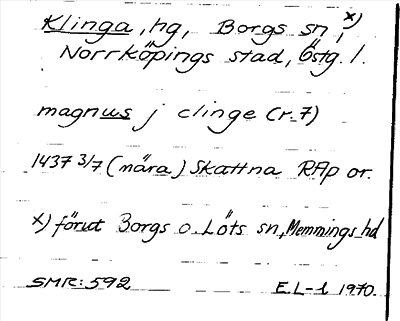 Klinga, hg, Borgs sn, x)
Norrköpings stad, Östg. l.
magnus j clinge (r. 7)
1437 3/7 (nära) Skattna RAp or.
x) förut Borgs o. Löts sn, Memmings hd
SMR: 592 E.L-l 1970.